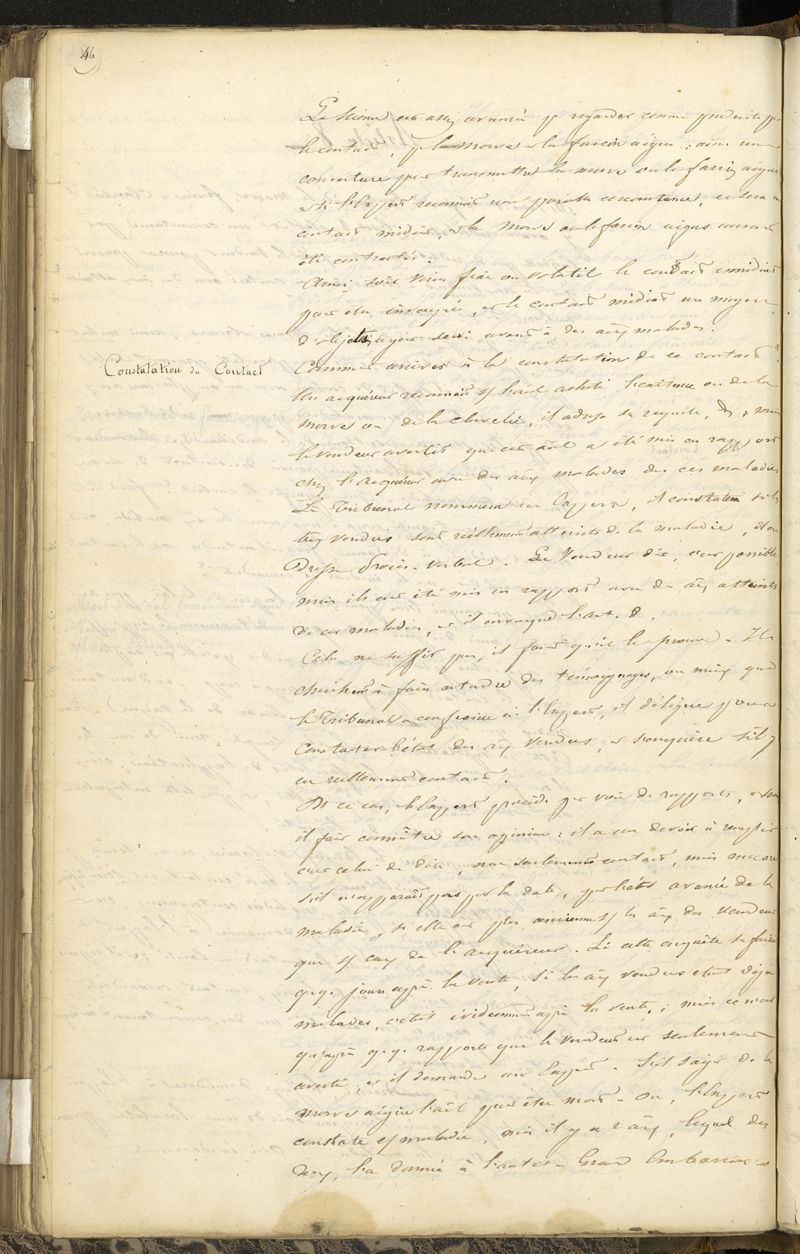 46
La Science est assez avancée pr regarder comme produite par
le contact, pr la morve et le farcin aigus ; ainsi une
couverture peut transmettre la morve ou le farcin aigus
et si l'Expert reconnait une pareille circonstance, ce sera un
contact médiat, et la Morve ou le farcin aigus auront
été contractés.
Ainsi soit virus fixe ou volatil le contact immédiat
peut être invoqué, et le contact médiat au moyen
d'objets ayant servi avant à des aux malades.
Constatation du Contact
Comment arriver à la constatation de ce contact ?
Un acquéreur reconnait qu'il a acheté
morve ou de la clavelée, il adresse sa requête,
le vendeur avertit que cet aal a été mis en rapport
chez l'acquéreur avec des aux malades de ces maladies
Le Tribunal nommera un Expert, il constatera si les
bêtes vendues sont réellement atteintes de la maladie, et en
Dresse Procès-verbal. Le Vendeur dit, c'est possible
mais ils ont été mis en rapport avec des aux atteints
de ces maladies, et il invoque l'art. 8.
Cela ne suffit pas, il faut qu'il le prouve. Il
cherchera à faire entendre des témoignages, ou mieux que
le Tribunal a confiance en l'Expert, il délègue pour
Constater l'état des aux vendus, et s'enquérir s'il y
eu réellement contact.
Ds ce cas, l'Expert procède par voie de rapports, et
il fait connaître son opinion : il a un devoir à remplir
c'est celui de dire, non seulement contact, mais encore
s'il n'apparait pas par la date, par l'état avancé de la
maladie, si elle est plus ancienne sur les aux du vendeur
que sur ceux de l'acquéreur. Si cette enquête se fait
q.q. jours après la vente, si les aux vendus etait déjà
malades, c'était évidemment après la vente ; mais ce n'est
qu'après q.q. rapports que le vendeur est seulement
averti, et il demande un Expert. S'il s'agit de la
morve aigue l'aal peut être mort ou, l'Expert
constate sa maladie, mais il y a 2 aux, lequel des
deux, l'a donnée à l'autre. Grand Embarras